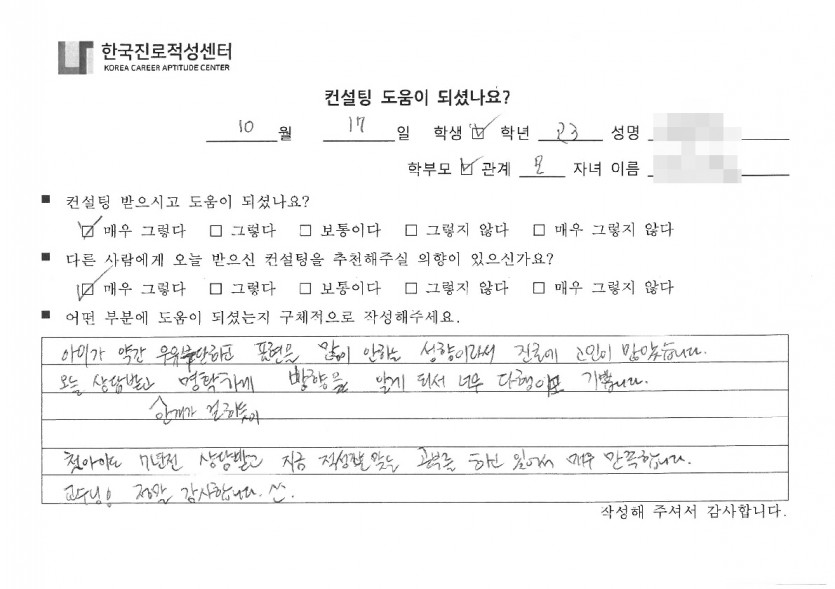 한국진로적성센터
KOREA CAREER APTITUDE CENTER
컨설팅 도움이 되셨나요?
10 월 17 일 학생 ☑ 학년 고3 성명
학부모 ☑ 관계 모 자녀 이름
■ 컨설팅 받으시고 도움이 되셨나요?
☑ 매우 그렇다 □ 그렇다 □ 보통이다 □ 그렇지 않다 □ 매우 그렇지 않다
■ 다른 사람에게 오늘 받으신 컨설팅을 추천해주실 의향이 있으신가요?
☑ 매우 그렇다 □ 그렇다 □ 보통이다 □ 그렇지 않다 □ 매우 그렇지 않다
■ 어떤 부분에 도움이 되셨는지 구체적으로 작성해주세요.
아이가 약간 우유부단하고 표현을 많이 안하는 성향이라서 진로에 고민이 많았습니다.
오늘 상담받고 명확하게 방향을 알게 되서 너무 다행이고 기쁩니다.
안개가 걷히듯이
첫아이도 7년전 상담받고 지금 적성에 맞는 공부를 하고 있어서 매우 만족합니다.
교수님 정말 감사합니다.
작성해 주셔서 감사합니다.